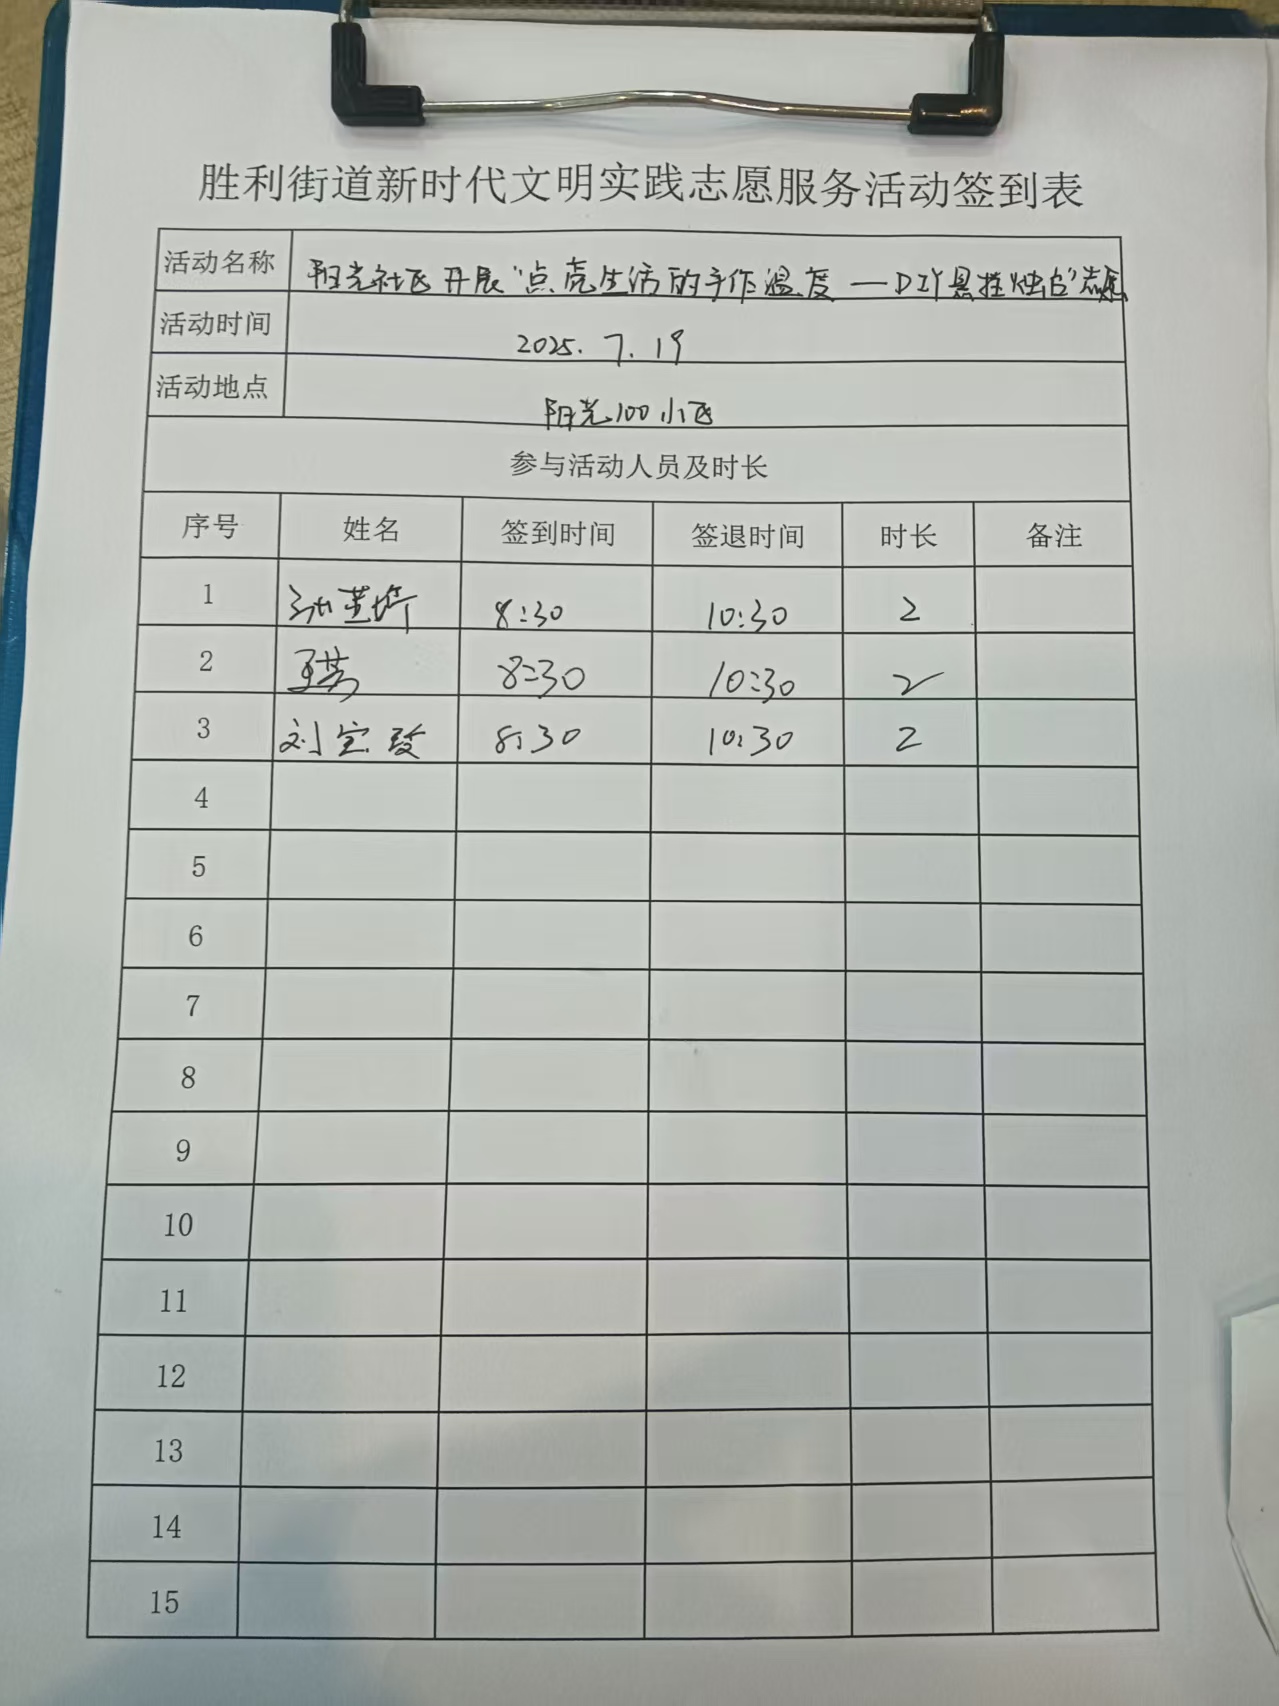 胜利街道新时代文明实践志愿服务活动签到表
活动名称 阳光社区开展"点亮生活的手作温度—DIY悬挂烛台"志愿
活动时间 2025.7.19
活动地点 阳光100小区
参与活动人员及时长
序号 姓名 签到时间 签退时间 时长 备注
1 8:30 10:30 2
2 王 8:30 10:30 2
3 刘宝玫 8:30 10:30 2
4
5
6
7
8
9
10
11
12
13
14
15